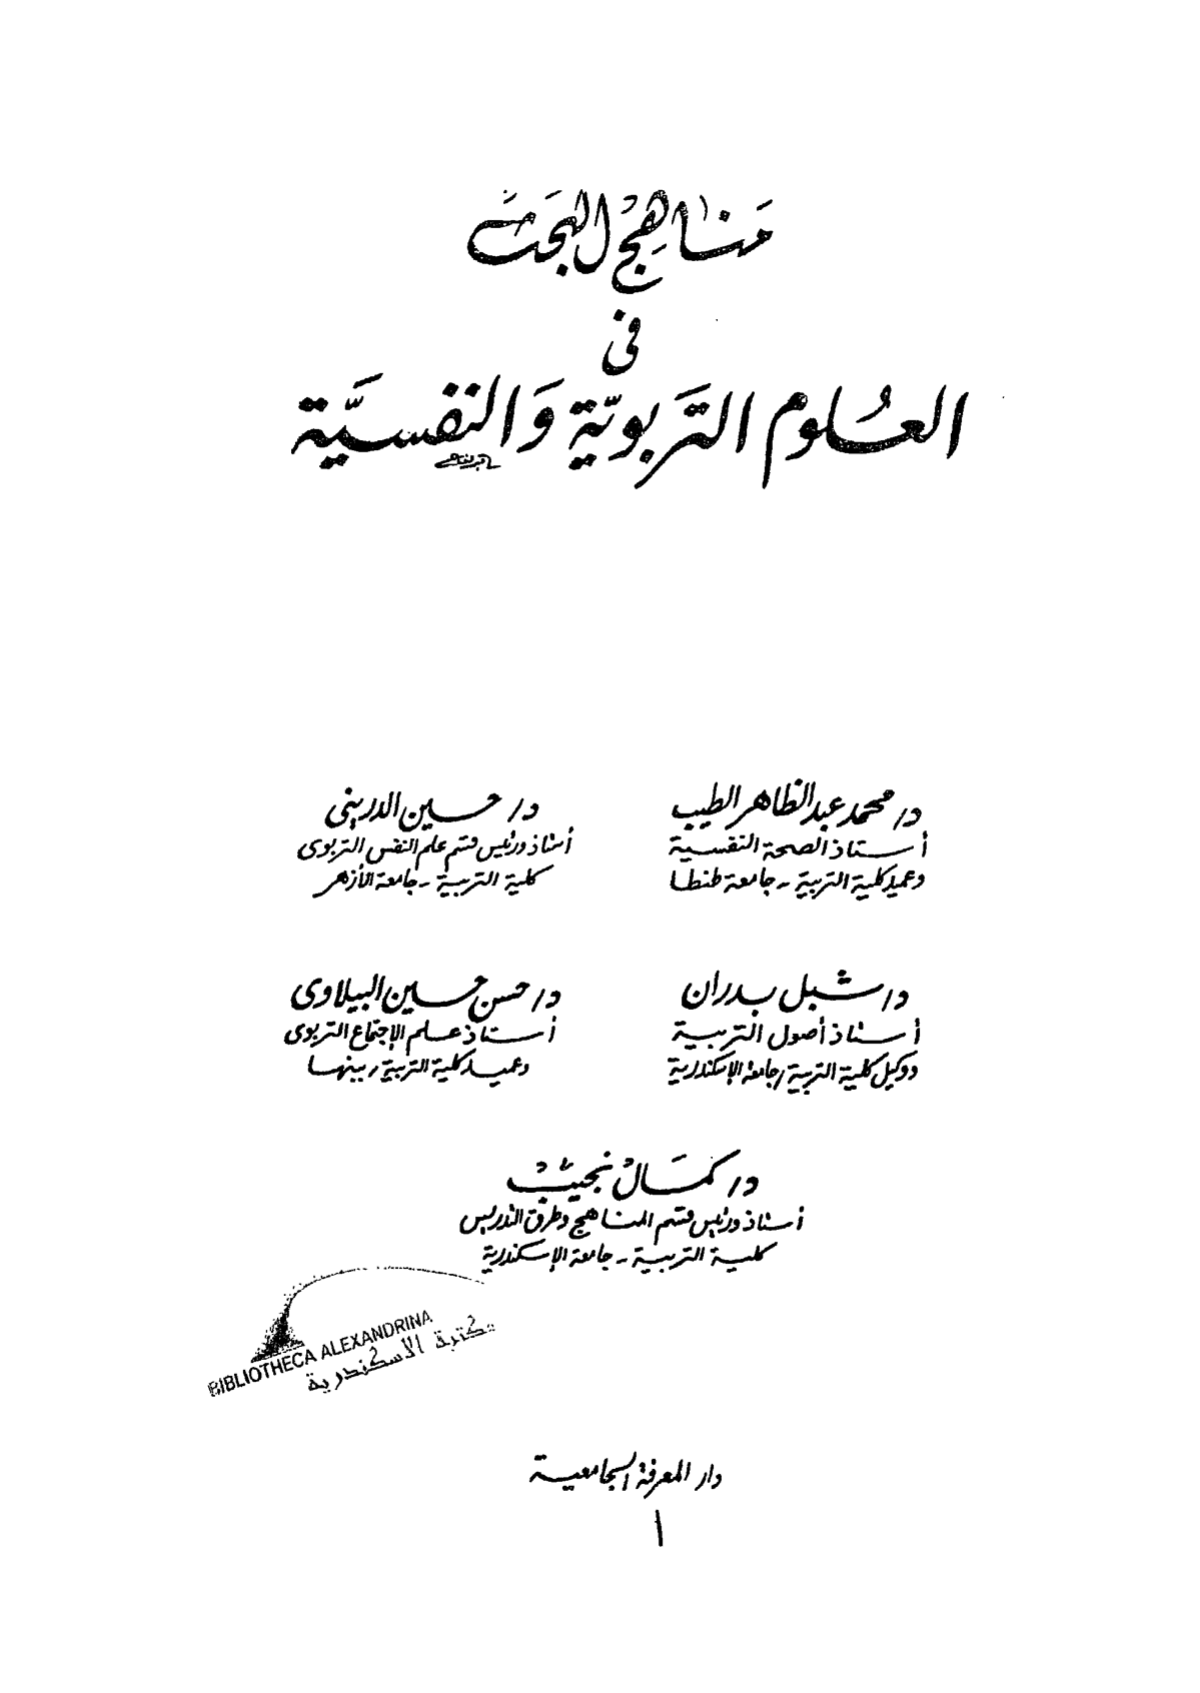 مناهج البحث
فى
العلوم التربوية والنفسية
د/ محمد عبد الظاهر الطيب
أستاذ الصحة النفسية
وعميد كلية التربية - جامعة طنطا
د/ حسين الدرينى
أستاذ ورئيس قسم علم النفس التربوى
كلية التربية - جامعة الأزهر
د/ شبل بدران
أستاذ أصول التربية
ووكيل كلية التربية / جامعة الإسكندرية
د/ حسن حسين البيلاوى
أستاذ علم الإجتماع التربوى
وعميد كلية التربية / ببنها
د/ كمال نجيب
أستاذ ورئيس قسم المناهج وطرق التدريس
كلية التربية - جامعة الإسكندرية
BIBLIOTHECA ALEXANDRINA
مكتبة الاسكندرية
دار المعرفة الجامعية
١